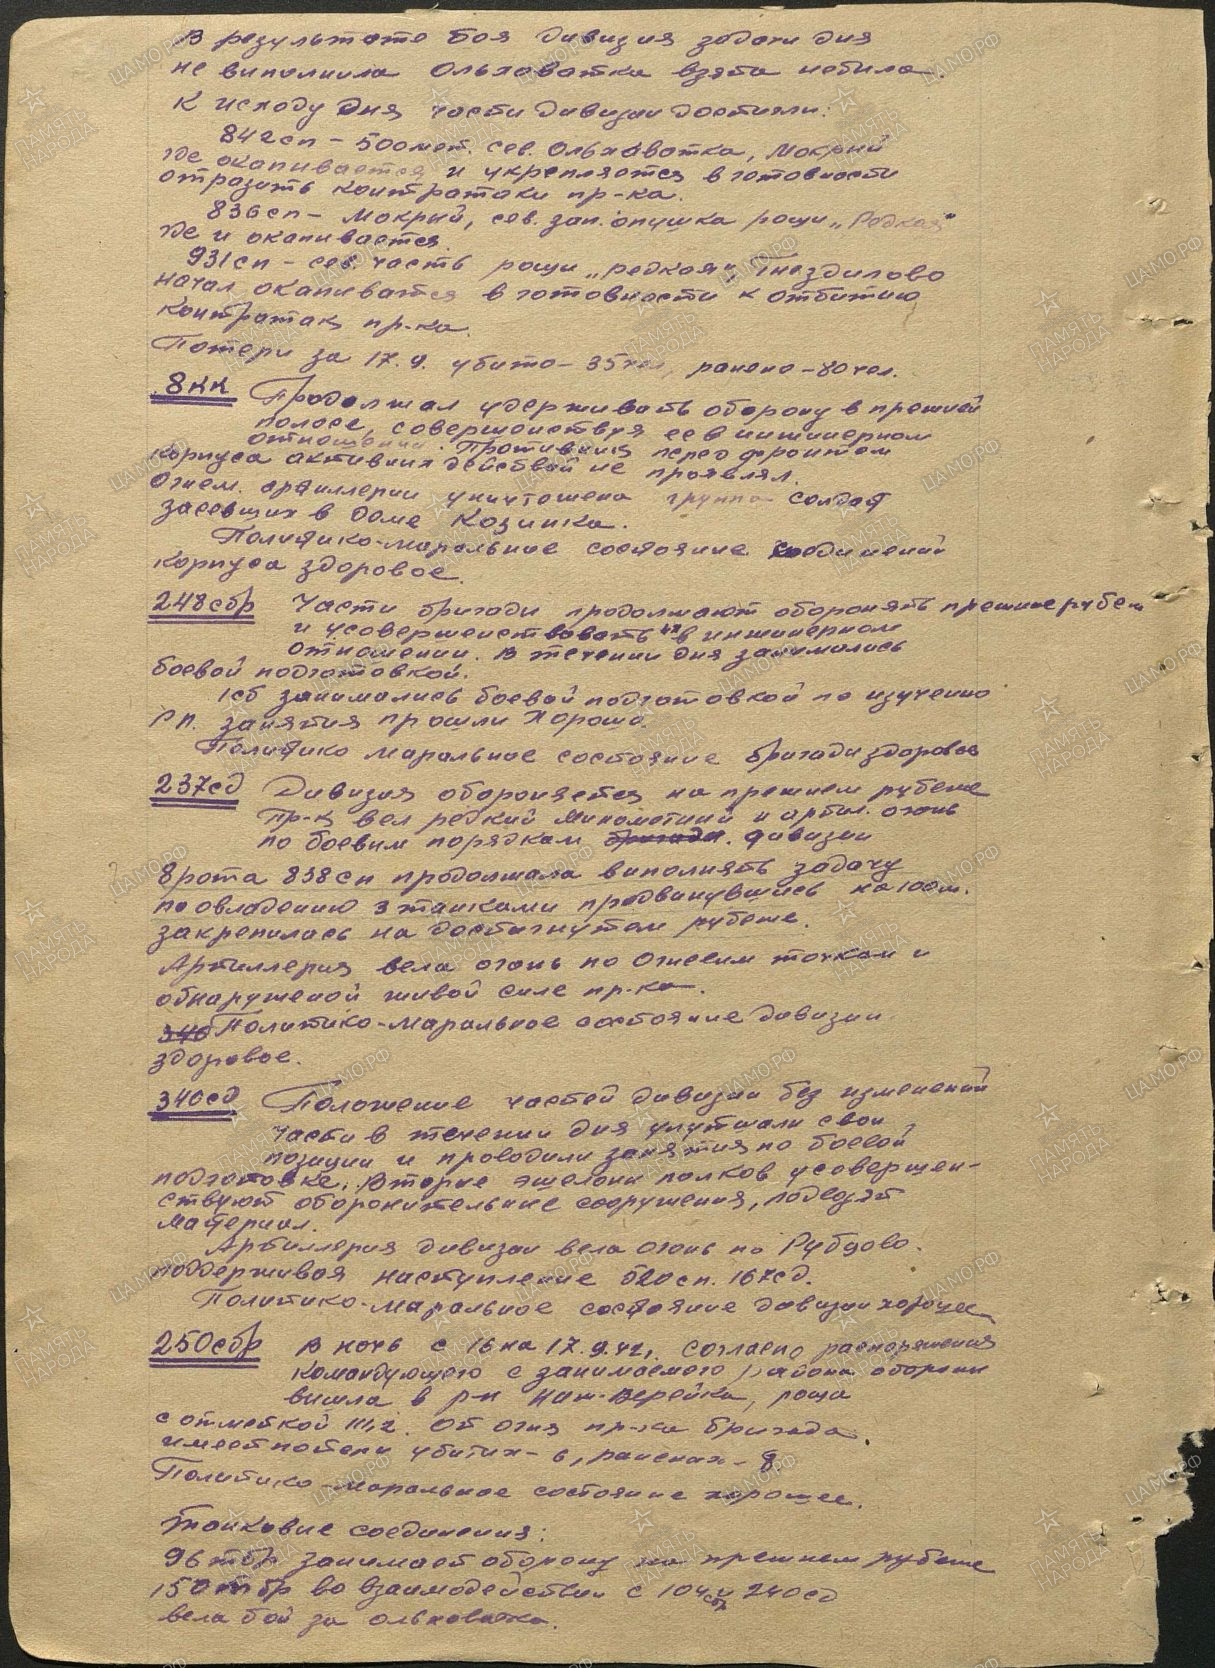 В результате боя дивизия задачи дня
не виполнила Ольховатка взята небила.
К исходу дня части дивизии достигли:
842сп – 500мет. сев. Ольховатка, Мокрий
где окапивается и укрепляется в готовности
отразить контратаки пр-ка.
836сп – Мокрий, сев. зап. опушка рощи „Редкая"
где и окапивается.
931сп – сев. часть рощи „редкая", Гнездилово
начал окапиватся в готовности к отбитию
контратак пр-ка.
Потери за 17.9. убито – 35 чел, ранено – 80 чел.
8кк Продолжал удерживать оборону в прежней
полосе, совершенствуя ее в инжинерном
отношении. Противник перед фронтом
корпуса активних действий не проявлял.
Огнем артиллерии уничтожена группа солдат
засевших в доме Козинка.
Политико-моральное состояние соединений
корпуса здоровое.
248сбр Части бригади продолжают оборонять прежние рубеж
и усовершенствовать их в инжинерном
отношении. В течении дня занимались
боевой подготовкой.
1сб занимались боевой подготовкой по изучению
РП. занятия прошли хорошо.
Политико маральное состояние бригади здоровое
237сд Дивизия обороняется на прежнем рубеже
Пр-к вел редкий минометний и артил. огонь
по боевим порядкам бригади. дивизии
8 рота 838сп продолжала виполнять задачу
по овладению 3 танками продвинувшись на 100м.
закрепилась на достигнутом рубеже.
Артиллерия вела огонь по огневим точкам и
обнаруженой живой силе пр-ка.
340 Политико-маральное состояние дивизии
здоровое.
340сд Положение частей дивизии без изменений
части в течении дня улутшали свои
позиции и проводили занятия по боевой
подготовке. Вторие эшелони полков усовершен-
ствуют оборонительние сооружения, подвозят
материал.
Артиллерия дивизии вела огонь по Рубцово.
поддерживая наступление 520сп. 167сд.
Политико-маральное состояние дивизии хорошее
250сбр В ночь с 16 на 17.9.42г. согласно распоряжения
командующего с занимаемого района оборони
вишла в р-н Ниж-Верейка, роща
с отметкой 111,2. От огня пр-ка бригада
имеет потери убитих – 6, раненах – 8
Политико-маральное состояние хорошее.
Танковие соединения:
96 тбр занимает оборону на прежнем рубеже
150 тбр во взаимодействии с 104сбр и 240сд
вела бой за ольховатка.
ЦАМО.РФ
ПАМЯТЬ
НАРОДА